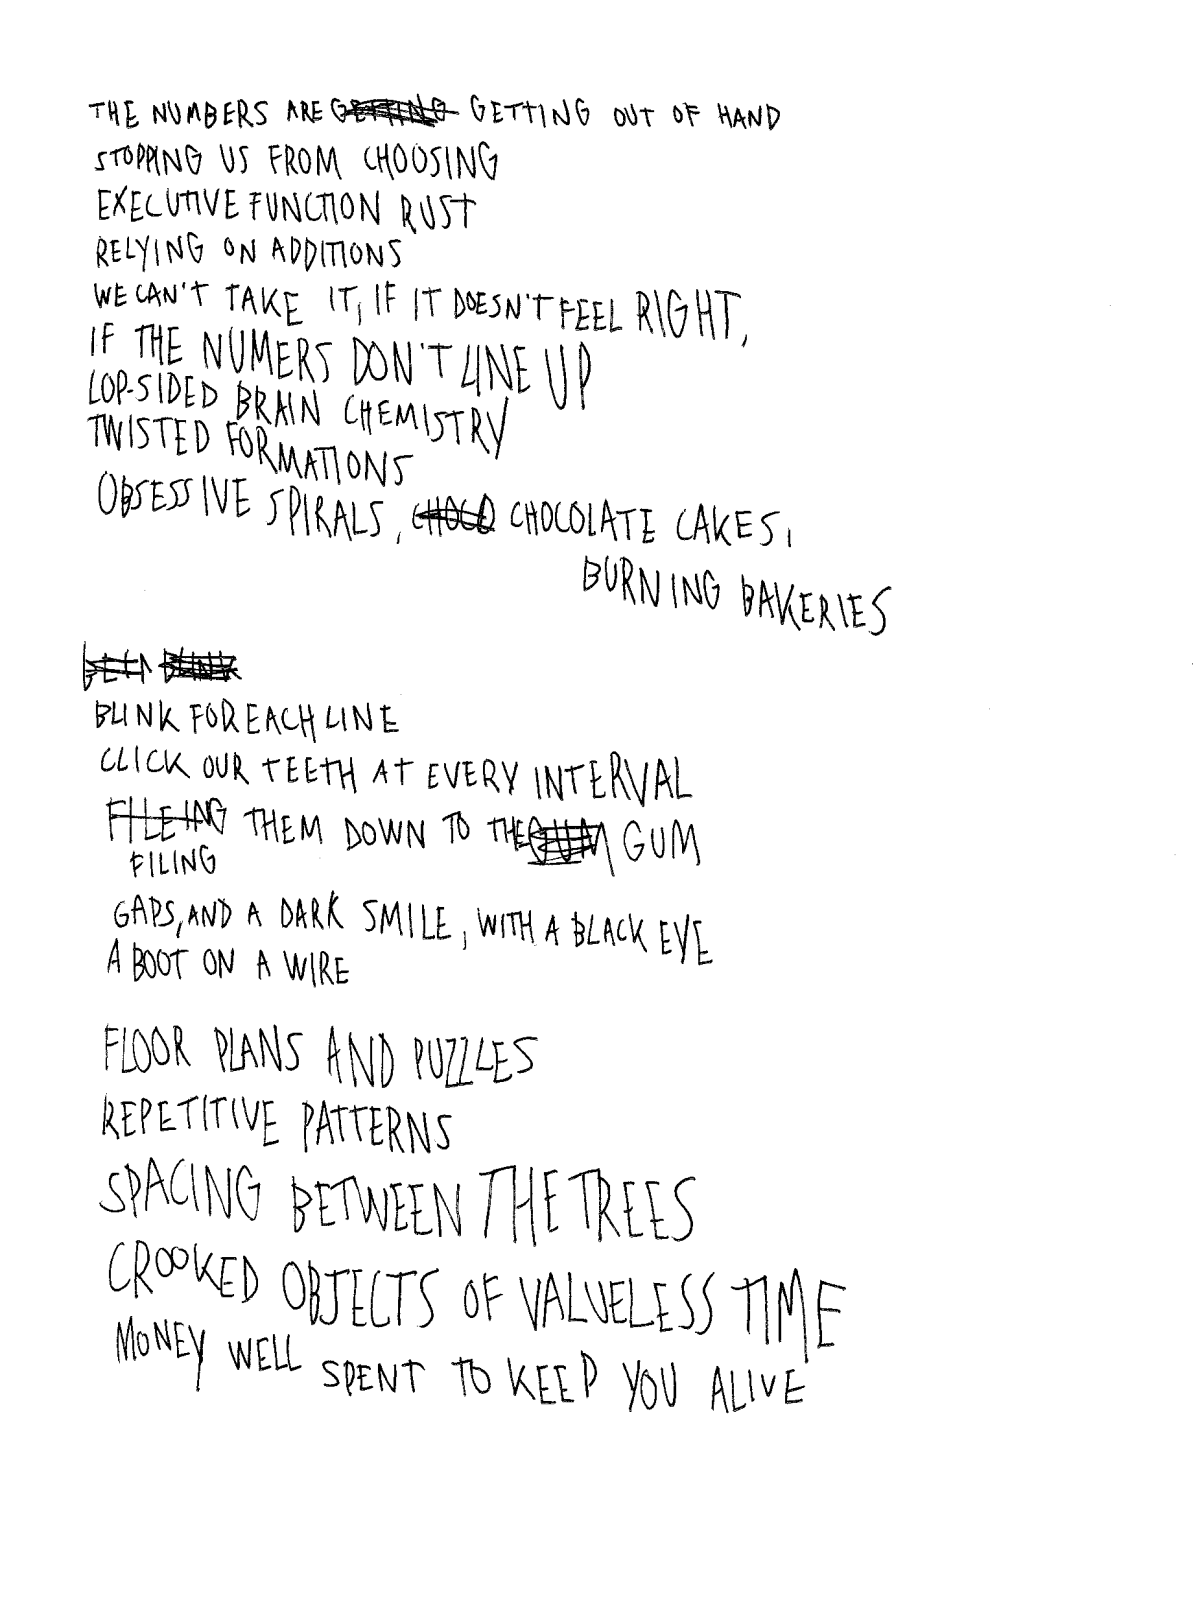 THE NUMBERS ARE GETTING GETTING OUT OF HAND
STOPPING US FROM CHOOSING
EXECUTIVE FUNCTION RUST
RELYING ON ADDITIONS
WE CAN'T TAKE IT, IF IT DOESN'T FEEL RIGHT,
IF THE NUMERS DON'T LINE UP
LOP-SIDED BRAIN CHEMISTRY
TWISTED FORMATIONS
OBSESSIVE SPIRALS, CHOCO CHOCOLATE CAKES,
BURNING BAKERIES
BLINK
BLINK FOR EACH LINE
CLICK OUR TEETH AT EVERY INTERVAL
FILEING THEM DOWN TO THE GUM GUM
FILING
GAPS, AND A DARK SMILE, WITH A BLACK EYE
A BOOT ON A WIRE
FLOOR PLANS AND PUZZLES
REPETITIVE PATTERNS
SPACING BETWEEN THE TREES
CROOKED OBJECTS OF VALUELESS TIME
MONEY WELL SPENT TO KEEP YOU ALIVE